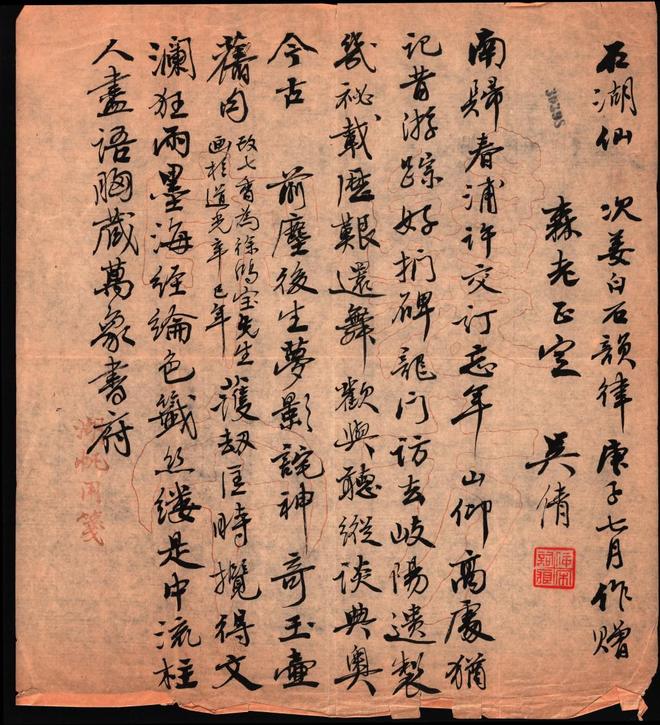 石湖仙 次姜白石韻律 庚子七月作贈
森老正定 吳倩
南歸春浦許交訂忘年山仰高處猶
記昔游蹤好捫碑龍门访去岐陽遺製
幾祕載歷艱還舞歡與聽縱谈典奥
今古 前塵後生夢影詫神奇玉壷
舊句 改七香為徐鸿宝先生
画於道光辛巳年
護劫匡時攬得文
瀾狂雨墨海經綸色籤丝縷是中流柱
人盡語胸藏萬象書府
湖帆用箋